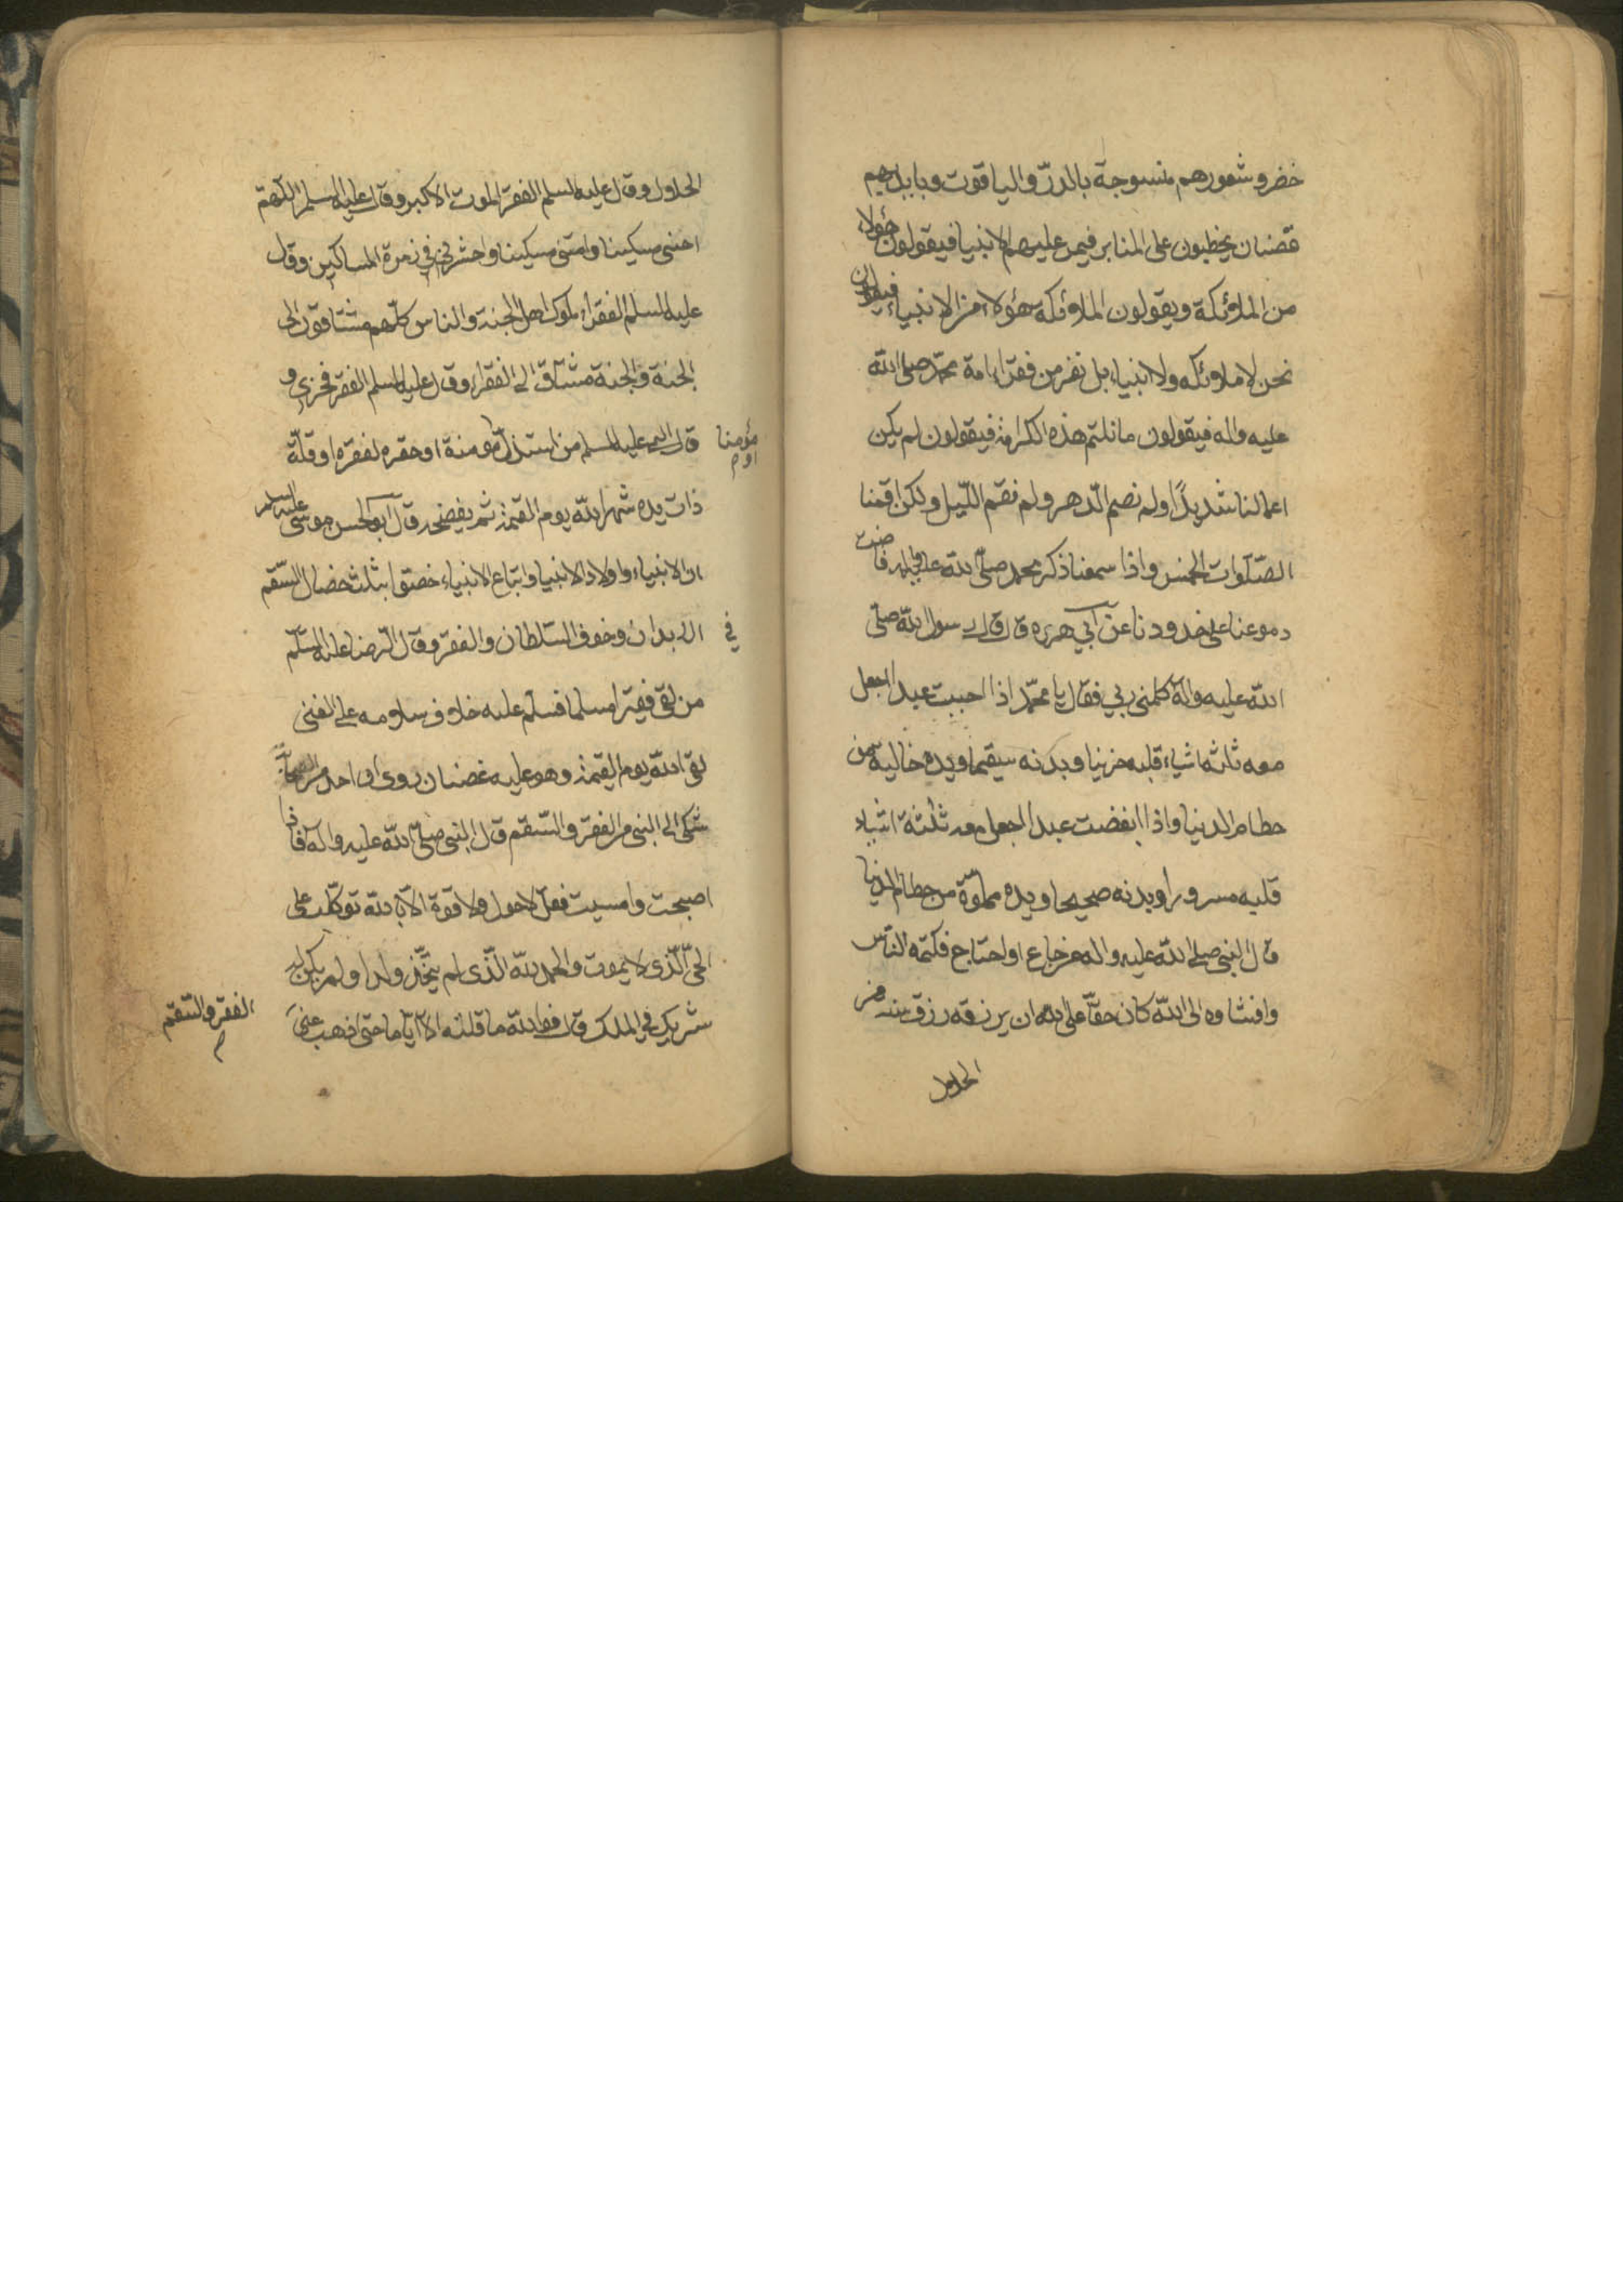 خضر وشعورهم منسوجة بالدرّ والياقوت وبايديهم
قضبان يخطبون على المنابر فيمر عليهم الانبيا فيقولون هؤلاء
من الملائكة ويقولون الملائكة هؤلاء من الانبياء فيقولون
نحن لا ملائكه ولا انبياء بل نفر من فقراء امة محمّد صلى الله
عليه واله فيقولون ما نلتم هذه الكرامة فيقولون لم يكن
اعمالنا شديدًا ولم نصم الدّهر ولم نقم اللّيل ولكن اقمنا
الصّلوات الخمس واذا سمعنا ذكر محمد صلّى الله عليه واله فاضت
دموعنا على خدودنا عن ابي هريره قال قال رسول الله صلّى
الله عليه وآله كلمنى ربي فقال يا محمّد اذا احببت عبدا اجعل
معه ثلثه اشياء قلبه حزينا وبدنه سقيما ويده خاليه من
حطام الدنيا واذا ابغضت عبدا اجعل معه ثلثة اشياء
قلبه مسرورا وبدنه صحيحا ويده مملوّة من حطام الدنيا
قال النبي صلى الله عليه واله من جاع او احتاج فكتمه النّاس
وافشاوه الى الله كان حقّا على الله ان يرزقه رزق سنه من
الحلال
الحلال وقال عليه السلم الفقر الموت الاكبر وقال عليه السلم اللّهمّ
احينى مسكينا وامتنى مسكينا واحشرني في زمرة المساكين وقال
عليه السلم الفقراء ملوك اهل الجنة والناس كلّهم مشتاقون الى
الجنة والجنة مشتاق الى الفقراء وقال عليه السلم الفقر فخرى و
قال النبي عليه السلم من استذلّ مومنة او حقره لفقره او قلّة
مؤمنا او م
ذات يده شهر الله يوم القيمة ثم يفضحه قال ابو الحسن موسى عليه السلم
ان الانبياء واولاد الانبيا واتباع الانبياء خصّوا بثلث خصال السّقم
في
الابدان وخوف السّلطان والفقر وقال الرّضا عليه السّلم
من لقى فقيرا مسلما فسلّم عليه خلاف سلامه على الغنى
لقى الله يوم القيمة وهو عليه غضبان روى ان احد من الصحابة
شكى الى النبى من الفقر والسّقم قال النبى صلى الله عليه وآله فاذا
اصبحت وامسيت فقل لا حول ولا قوة الّا بالله توكّلت على
الحىّ الّذى لا يموت والحمد لله الّذى لم يتّخذ ولدا ولم يكن له
شريك في الملك قال فوالله ما قلته الّا ايّاما حتى اذهب عنى
الفقر والسّقم م